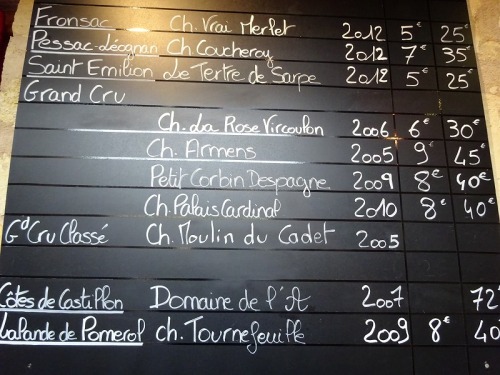 Fronsac Ch. Vrai Merlet 2012 5€ 25€
Pessac-Léognan Ch Coucheroy 2012 7€ 35€
Saint Emilion Le Tertre de Sarpe 2012 5€ 25€
Grand Cru
Ch. La Rose Vircoulon 2006 6€ 30€
Ch. Armens 2005 9€ 45€
Petit Corbin Despagne 2009 8€ 40€
Ch. Palais Cardinal 2010 8€ 40€
Gd Cru Classé Ch. Moulin du Cadet 2005
Côtes de Castillon Domaine de l'A 2007 72€
Lalande de Pomerol ch. Tournefeuille 2009 8€ 40